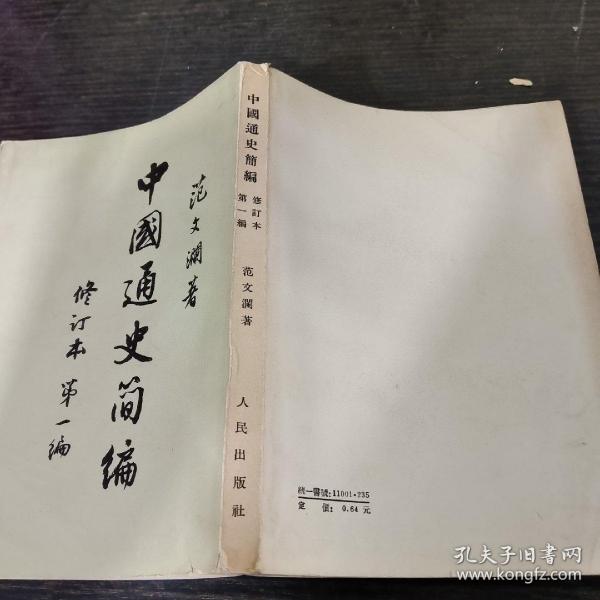 范文瀾著
中國通史简编
修订本 第一编
中國通史簡編
修訂本
第一編
范文瀾著
人民出版社
統一書號:11001·235
定 價: 0.64 元
孔夫子旧书网
www.kongfz.com